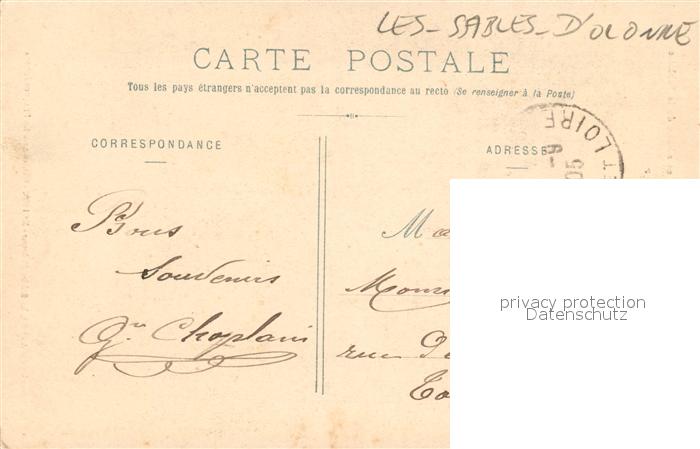 LES-SABLES-D'OLONNE
CARTE POSTALE
Tous les pays étrangers n'acceptent pas la correspondance au recto (Se renseigner à la Poste)
CORRESPONDANCE
ADRESSE
LOIRE
05
Bons
Souvenirs
Choplain
rue
privacy protection
Datenschutz